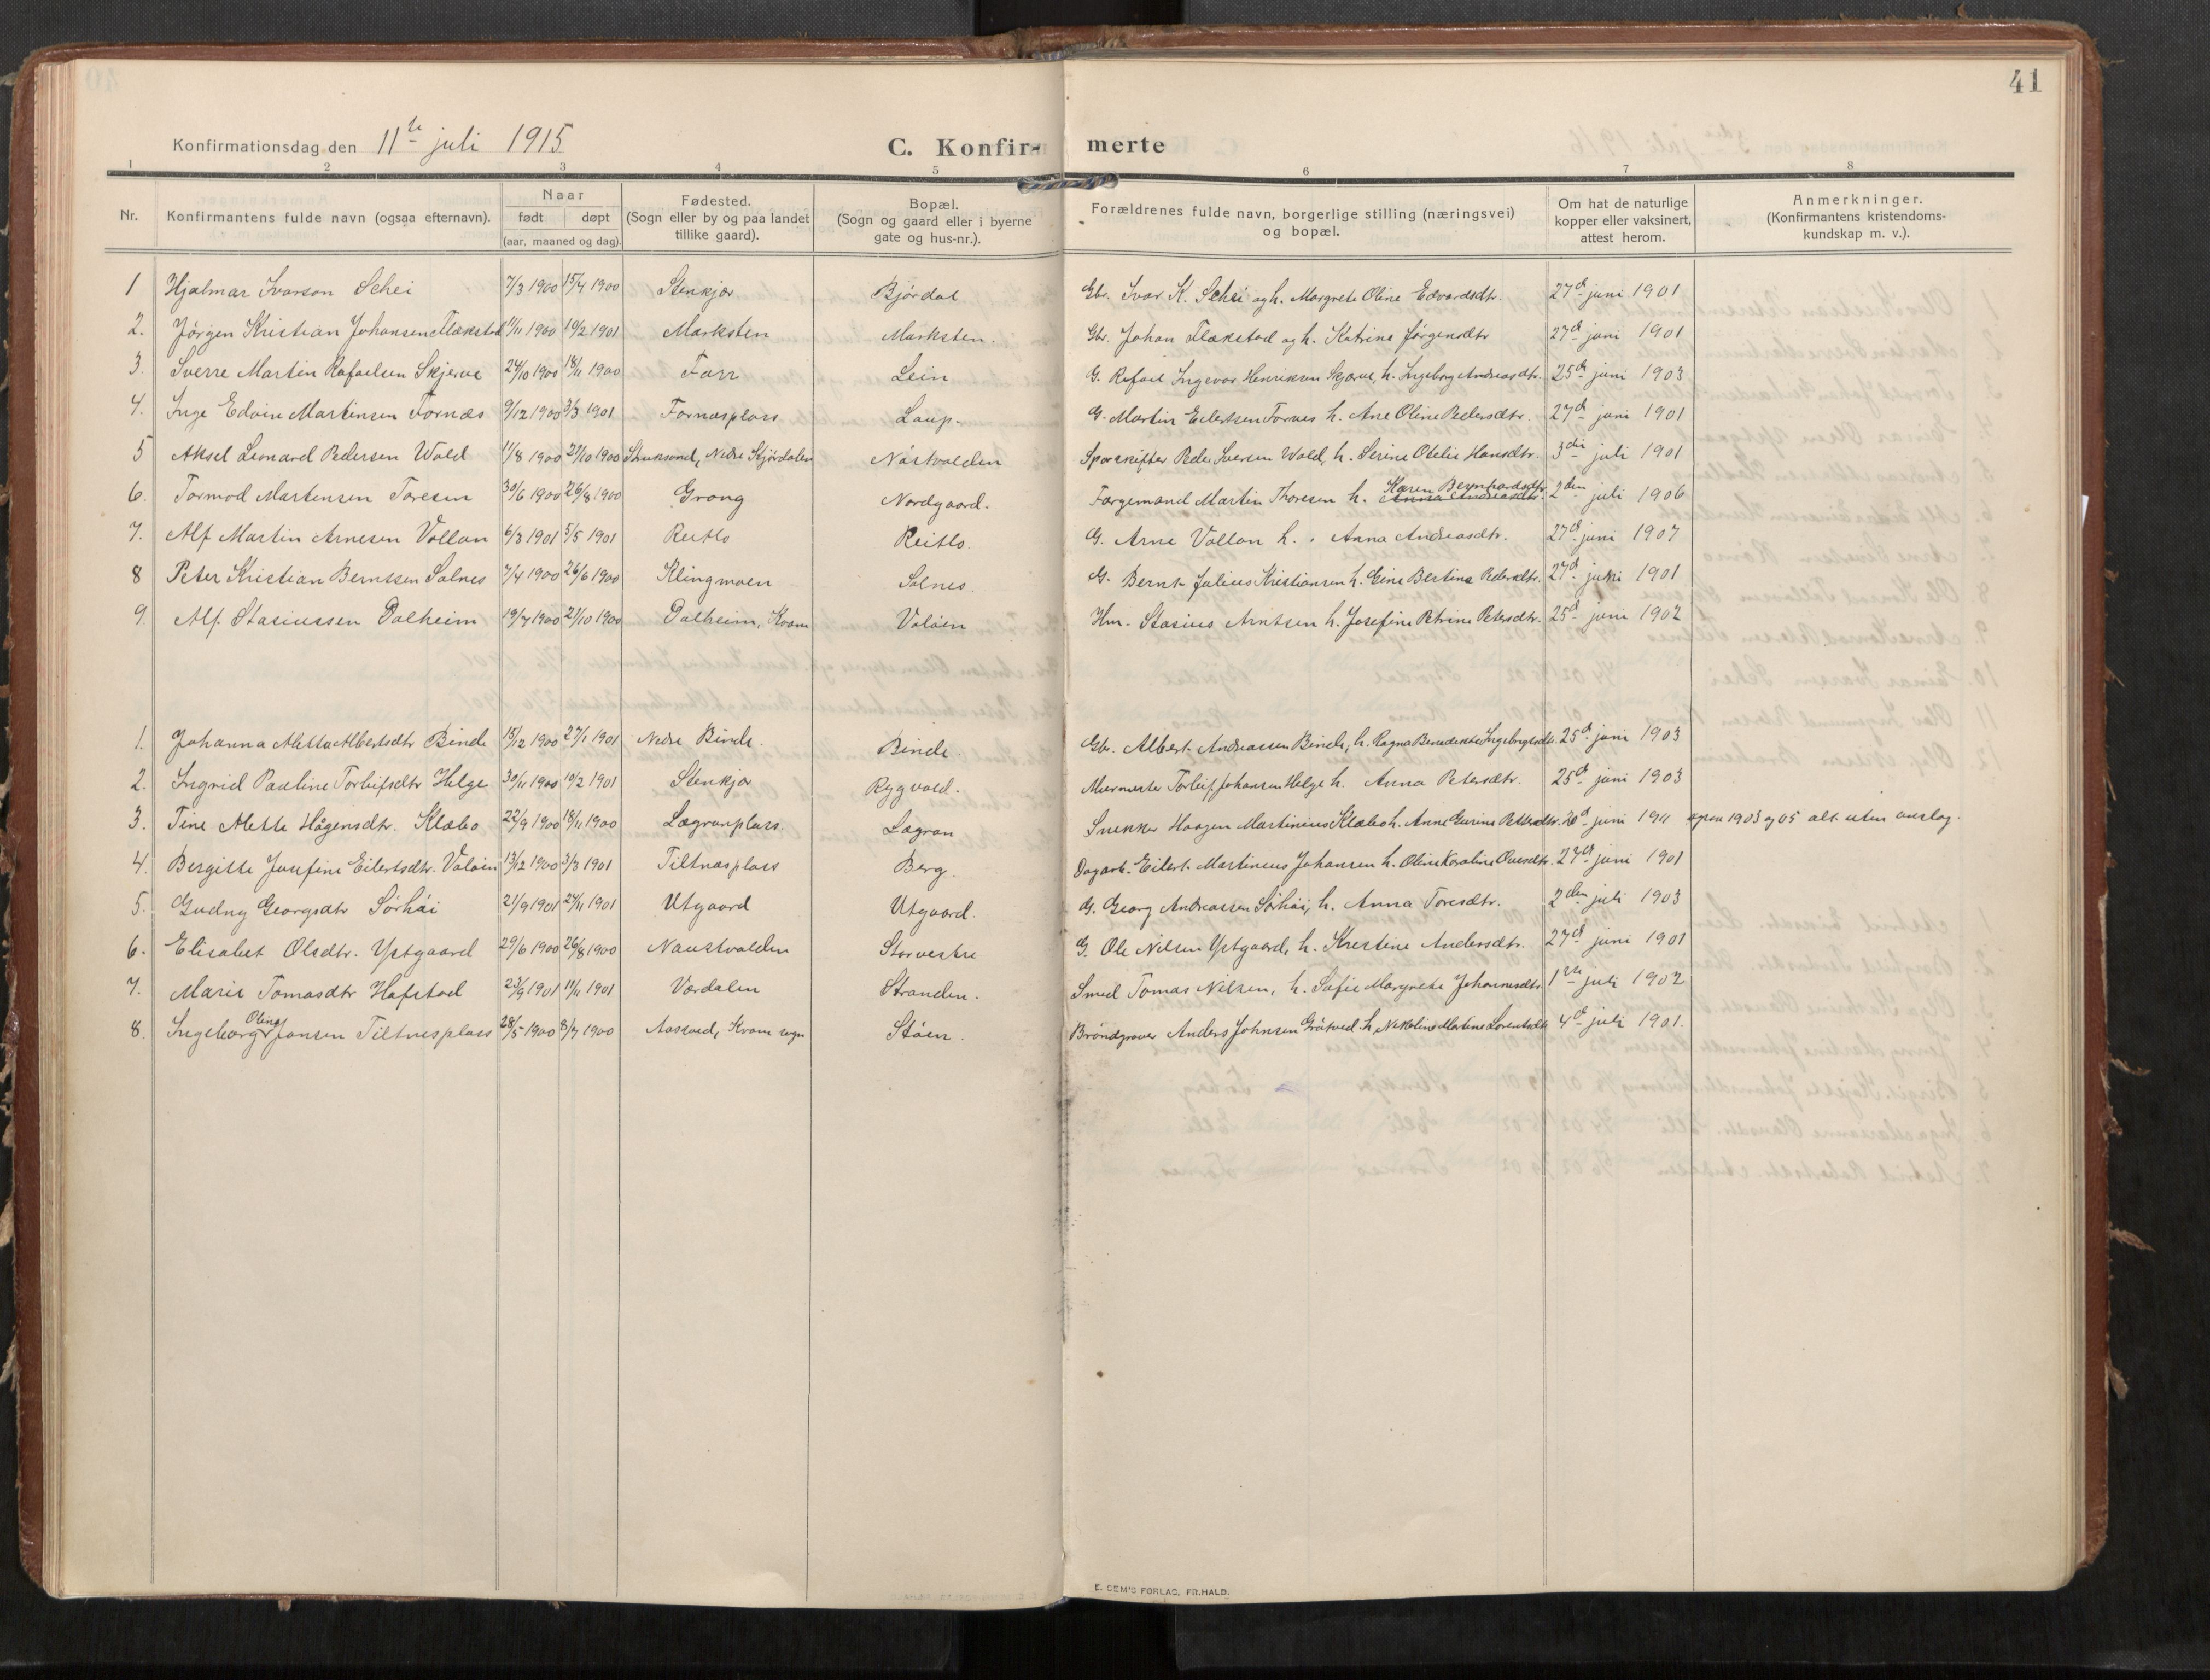 41
Konfirmationsdag den 11te juli 1915
C. Konfir- merte
1 2 3 4 5 6 7 8
Nr. Konfirmantens fulde navn (ogsaa efternavn). Naar født døpt (aar, maaned og dag). Fødested. (Sogn eller by og paa landet tillike gaard). Bopæl. (Sogn og gaard eller i byerne gate og hus-nr.). Forældrenes fulde navn, borgerlige stilling (næringsvei) og bopæl. Om hat de naturlige kopper eller vaksinert, attest herom. Anmerkninger. (Konfirmantens kristendoms-kundskap m. v.).
1 Hjalmar Ivarson Schei 7/3 1900 15/4 1900 Stenkjær Bjørdal Gbr. Ivar K. Schei og h. Margrete Oline Edvardsdtr. 27de juni 1901
2. Jørgen Kristian Johansen Flækstad 11/11 1900 10/2 1901 Marksten Marksten. Gbr. Johan Flækstad og h. Katrine Jørgensdtr 27de juni 1901
3. Sverre Martin Rafaelsen Skjerve 24/10 1900 18/11 1900 Farr Lein G. Rafael Ingevar Henriksen Skjerve, h. Ingeborg Andreasdtr. 25de juni 1903
4. Inge Edvin Martinsen Fornæs 9/12 1900 3/3 1901 Fornæsplass Laup. G. Martin Eilertsen Fornes h. Ane Oline Pedersdtr. 27de juni 1901
5 Aksel Leonard Pedersen Wold 11/8 1900 21/10 1900 Nedre Stjørdalen Nøstvolden Sporskifter Peder Iversen Wold, h. Serine Otelie Hansdtr. 3die juli 1901
6. Tormod Martensen Toresen 30/6 1900 26/8 1900 Grong Nordgaard. Færgemand Martin Thoresen h. Karen Bernhardsdtr. Anna Andreasdtr. 2den juli 1906
7. Alf Martin Arnesen Vollan 6/3 1901 5/5 1901 Reitlo Reitlo. G. Arne Vollan h. Anna Andreasdtr. 27de juni 1907
8 Peter Kristian Berntsen Solnes 7/4 1900 26/6 1900 Klingmoen Solnes. G. Bernt Julius Kristiansen h. Eine Bertine Pedersdtr. 27de juni 1901
9. Alf Stasiussen Dalheim 19/7 1900 21/10 1900 Dalheim, Kvam Valøen Hm. Stasius Arntsen h. Josefine Petrine Petersdtr. 25de juni 1902
1. Johanna Aletta Albertsdtr Binde 15/12 1900 27/1 1901 Nedre Binde. Binde. Gbr. Albert Andreassen Binde, h. Ragna Benedikte Ingebrigtsdtr. 25de juni 1903
2. Ingrid Pauline Torleifsdtr Helge 30/11 1900 10/2 1901 Stenkjær Rygvold. Murmester Torleif Johansen Helge h. Anna Petersdtr. 25de juni 1903
3. Tine Alette Hågensdtr. Klæbo 22/9 1900 18/11 1900 Lægranplass. Lægran Snekker Haagen Martinius Klæbo h. Anne Gurine Pettersdtr. 20de juni 1911 ogsaa 1903 og 05 alt uten anslag.
4. Bergitte Josefine Eilertsdtr. Valøen 13/12 1900 3/3 1901 Tiltnæsplass Berg. Dagarb. Eilert Martineus Johansen h. Oline Karoline Olausdtr. 27de juni 1901
5. Gudny Georgsdtr Sørhöi 21/9 1901 24/11 1901 Utgaard Utgaard. G. Georg Andreassen Sørhöi, h. Anna Toresdtr. 2den juli 1903
6. Elisabet Olsdtr. Ystgaard 29/6 1900 26/8 1900 Naustvolden Storvestre G. Ole Nilsen Ystgaard, h. Kristine Andersdtr. 27de juni 1901
7. Marie Tomasdtr Hafstad 23/9 1901 11/11 1901 Værdalen Stranden. Smed Tomas Nilsen, h. Sofie Margrete Johannesdtr 1ste juli 1902
8. Ingeborg Oline Jansen Tiltnesplass 28/5 1900 8/7 1900 Aasved, Kvam sogn Støen. Brøndgraver Anders Johnsen Gråtved h. Nikoline Martine Lorentsdtr 4de juli 1901.
E. SEM'S FORLAG, FR.HALD.